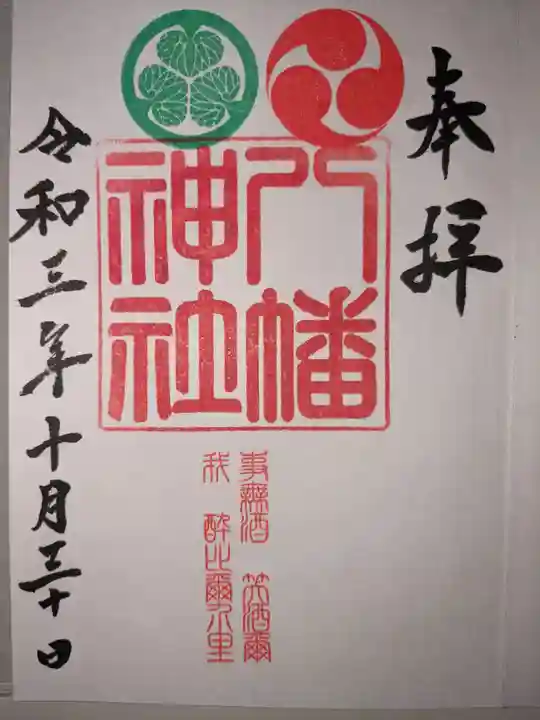 奉拝
八幡
神社
事無酒 笑酒爾
我 酔比爾祁里
令和三年十月三十日